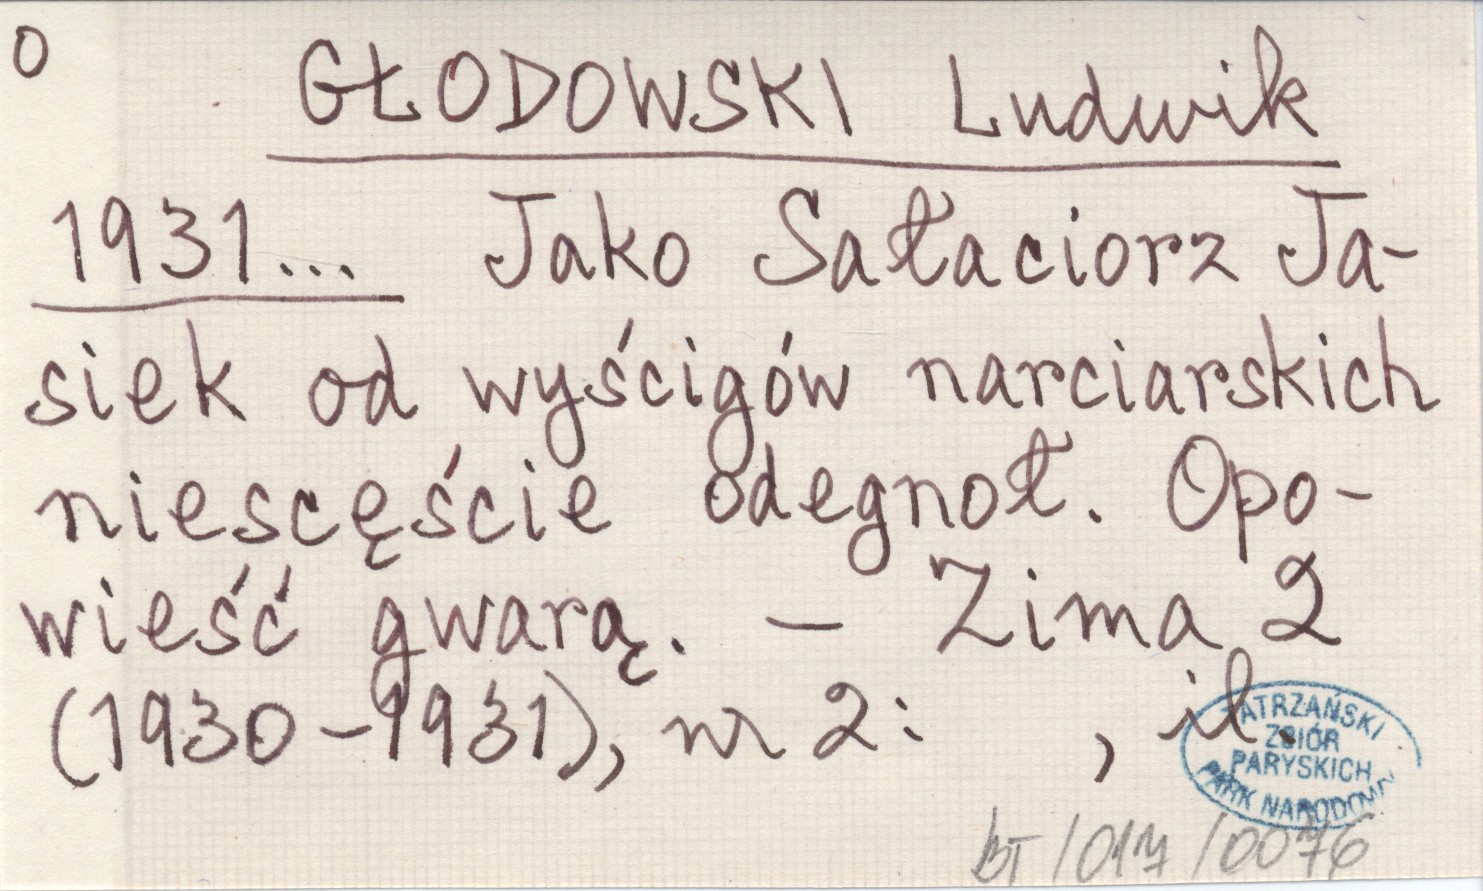 O
GŁODOWSKI Ludwik
1931... Jako Sałaciorz Ja-
siek od wyścigów narciarskich
niescęście odegnoł. Opo-
wieść gwarą. – Zima 2
(1930–1931), nr 2: , il.
TATRZAŃSKI
ZBIÓR
PARYSKICH
PARK NARODOWY
BT/017/0076